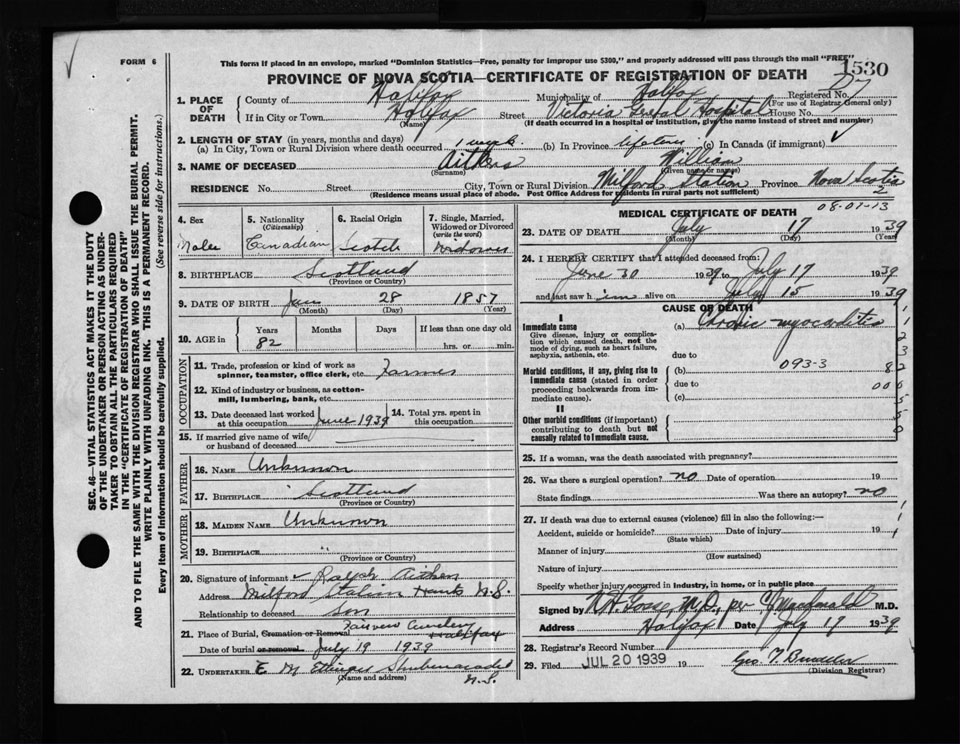 FORM 6
This form if placed in an envelope, marked "Dominion Statistics—Free, penalty for improper use $300," and properly addressed will pass through the mail "FREE"
PROVINCE OF NOVA SCOTIA—CERTIFICATE OF REGISTRATION OF DEATH
1530
1. PLACE OF DEATH
County of Halifax Municipality of Halifax Registered No. 77
(For use of Registrar General only)
If in City or Town Halifax Street Victoria General Hospital House No.
(Name) (If death occurred in a hospital or institution, give the name instead of street and number)
2. LENGTH OF STAY (in years, months and days)
(a) In City, Town or Rural Division where death occurred 1 week (b) In Province lifetime (c) In Canada (if immigrant)
3. NAME OF DECEASED Aitkens William
(Surname) (Given name or names)
RESIDENCE No. Street City, Town or Rural Division Milford Station Province Nova Scotia
(Residence means usual place of abode. Post Office Address for residents in rural parts not sufficient)
4. Sex Male
5. Nationality (Citizenship) Canadian
6. Racial Origin Scotch
7. Single, Married, Widowed or Divorced (write the word) Widower
8. BIRTHPLACE Scotland
(Province or Country)
9. DATE OF BIRTH Jan 28 1857
(Month) (Day) (Year)
10. AGE in Years 82 Months Days If less than one day old hrs. or min.
OCCUPATION
11. Trade, profession or kind of work as spinner, teamster, office clerk, etc. Farmer
12. Kind of industry or business, as cotton-mill, lumbering, bank, etc.
13. Date deceased last worked at this occupation June 1939
14. Total yrs. spent in this occupation
15. If married give name of wife or husband of deceased
FATHER
16. NAME Unknown
17. BIRTHPLACE Scotland
MOTHER
18. MAIDEN NAME Unknown
19. BIRTHPLACE "
(Province or Country)
20. Signature of informant Ralph Aitken
Address Milford Station Hants N.S.
Relationship to deceased son
21. Place of Burial, Cremation or Removal Fairview Cemetery Halifax
Date of burial or removal July 19 1939
22. UNDERTAKER E M Ettinger Shubenacadie
(Name and address) N.S.
MEDICAL CERTIFICATE OF DEATH
08-01-13
2
23. DATE OF DEATH July 17 1939
(Month) (Day) (Year)
24. I HEREBY CERTIFY that I attended deceased from:
June 30 1939 to July 17 1939
and last saw him alive on July 15 1939
CAUSE OF DEATH
I
Immediate cause
Give disease, injury or complication which caused death, not the mode of dying, such as heart failure, asphyxia, asthenia, etc.
(a) Chronic myocarditis
due to
Morbid conditions, if any, giving rise to immediate cause (stated in order proceeding backwards from immediate cause).
(b) 093-3
due to
(c)
II
Other morbid conditions (if important) contributing to death but not causally related to immediate cause.
25. If a woman, was the death associated with pregnancy?
26. Was there a surgical operation? no Date of operation 19
State findings Was there an autopsy? no
27. If death was due to external causes (violence) fill in also the following:—
Accident, suicide or homicide? Date of injury 19
(State which)
Manner of injury
(How sustained)
Nature of injury
Specify whether injury occurred in industry, in home, or in public place
Signed by N.H. Gosse, M.D., per C.J. Macdonald M.D.
Address Halifax Date July 19 1939
28. Registrar's Record Number
29. Filed JUL 20 1939 19 Geo. T.
(Division Registrar)
SEC. 46—VITAL STATISTICS ACT MAKES IT THE DUTY
OF THE UNDERTAKER OR PERSON ACTING AS UNDER-
TAKER TO OBTAIN ALL THE PARTICULARS REQUIRED
IN THE "CERTIFICATE OF REGISTRATION OF DEATH"
AND TO FILE THE SAME WITH THE DIVISION REGISTRAR WHO SHALL ISSUE THE BURIAL PERMIT.
WRITE PLAINLY WITH UNFADING INK. THIS IS A PERMANENT RECORD.
Every item of Information should be carefully supplied. (See reverse side for instructions.)